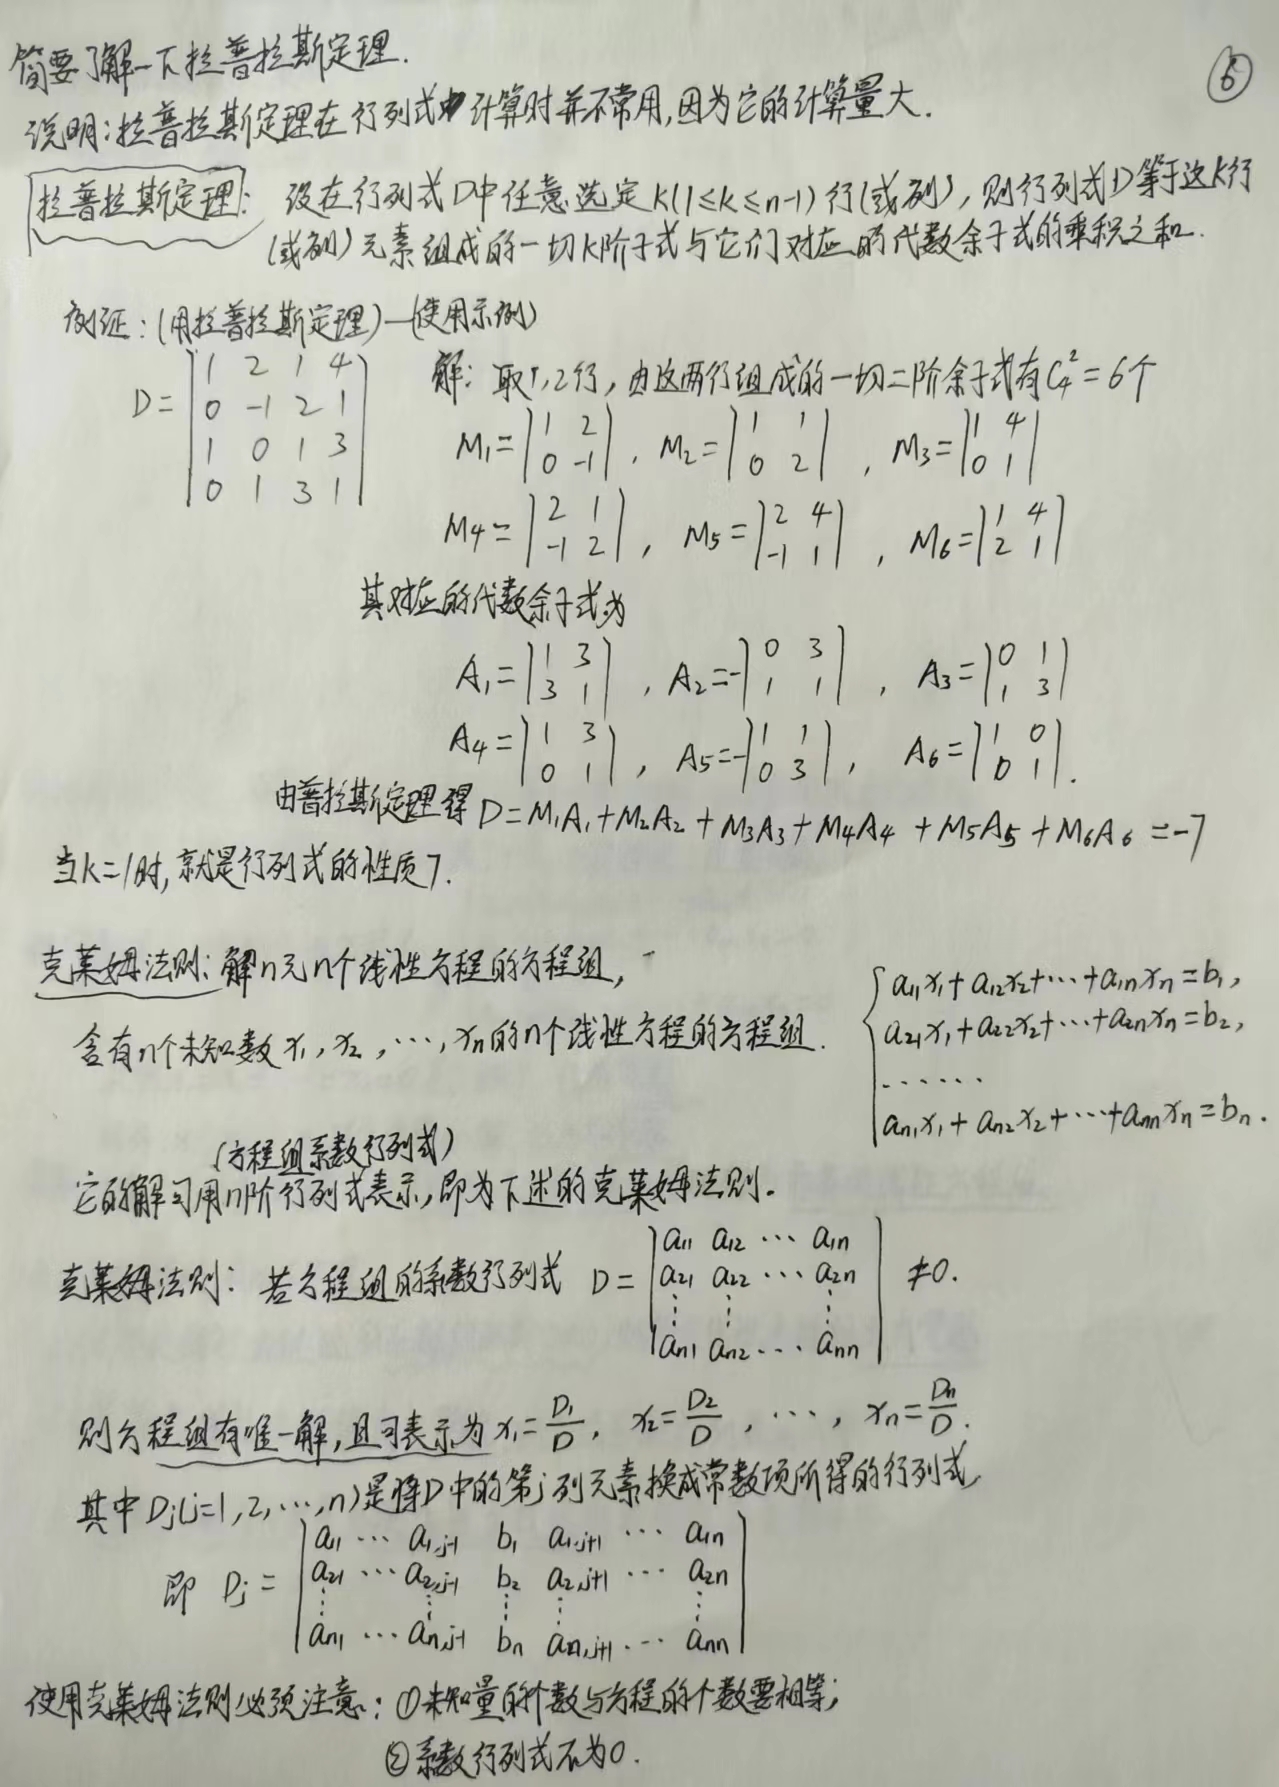 ⑥
简要了解一下拉普拉斯定理.
说明:拉普拉斯定理在行列式中计算时并不常用,因为它的计算量大.
拉普拉斯定理: 设在行列式D中任意选定K(1≤k≤n-1)行(或列),则行列式D等于这K行
(或列)元素组成的一切K阶子式与它们对应的代数余子式的乘积之和.
例证:(用拉普拉斯定理)—(使用示例)
D= | 1 2 1 4 |
| 0 -1 2 1 |
| 1 0 1 3 |
| 0 1 3 1 |
解: 取1,2行,由这两行组成的一切二阶余子式有C₄²=6个
M₁=|1 2; 0 -1|, M₂=|1 1; 0 2|, M₃=|1 4; 0 1|
M₄=|2 1; -1 2|, M₅=|2 4; -1 1|, M₆=|1 4; 2 1|
其对应的代数余子式为
A₁=|1 3; 3 1|, A₂=-|0 3; 1 1|, A₃=|0 1; 1 3|
A₄=|1 3; 0 1|, A₅=-|1 1; 0 3|, A₆=|1 0; 0 1|.
由普拉斯定理得 D=M₁A₁+M₂A₂+M₃A₃+M₄A₄+M₅A₅+M₆A₆=-7
当k=1时,就是行列式的性质7.
克莱姆法则:解n元n个线性方程的方程组,
含有n个未知数x₁,x₂,⋯,xₙ的n个线性方程的方程组.
{ a₁₁x₁+a₁₂x₂+⋯+a₁ₙxₙ=b₁,
a₂₁x₁+a₂₂x₂+⋯+a₂ₙxₙ=b₂,
......
aₙ₁x₁+aₙ₂x₂+⋯+aₙₙxₙ=bₙ.
(方程组系数行列式)
它的解可用n阶行列式表示,即为下述的克莱姆法则.
克莱姆法则: 若方程组的系数行列式 D= | a₁₁ a₁₂ ⋯ a₁ₙ |
| a₂₁ a₂₂ ⋯ a₂ₙ | ≠0.
| ⋮ ⋮ ⋮ |
| aₙ₁ aₙ₂ ⋯ aₙₙ |
则方程组有唯一解,且可表示为x₁=D₁/D, x₂=D₂/D, ⋯, xₙ=Dₙ/D.
其中Dj(j=1,2,⋯,n)是将D中的第j列元素换成常数项所得的行列式,
即 Dj= | a₁₁ ⋯ a₁,j-1 b₁ a₁,j+1 ⋯ a₁ₙ |
| a₂₁ ⋯ a₂,j-1 b₂ a₂,j+1 ⋯ a₂ₙ |
| ⋮ ⋮ ⋮ ⋮ ⋮ |
| aₙ₁ ⋯ aₙ,j-1 bₙ aₙ,j+1 ⋯ aₙₙ |
使用克莱姆法则必须注意: ①未知量的个数与方程的个数要相等;
②系数行列式不为0.